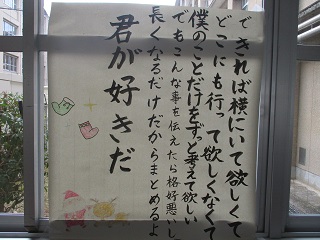 できれば横にいて欲しくて
どこにも行って欲しくなくて
僕のことだけをずっと考えて欲しい
でもこんな事を伝えたら格好悪いし
長くなるだけだからまとめるよ
君が好きだ